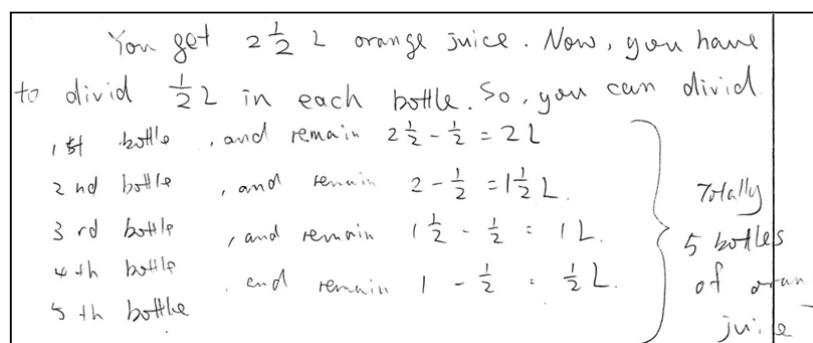 You get 2 1/2 L orange juice. Now, you have
to divid 1/2 L in each bottle. So, you can divid
1 st bottle , and remain 2 1/2 - 1/2 = 2L
2 nd bottle , and remain 2 - 1/2 = 1 1/2 L.
3 rd bottle , and remain 1 1/2 - 1/2 = 1L.
4 th bottle , and remain 1 - 1/2 = 1/2 L.
5 th bottle
Totally
5 bottles
of oran
juice